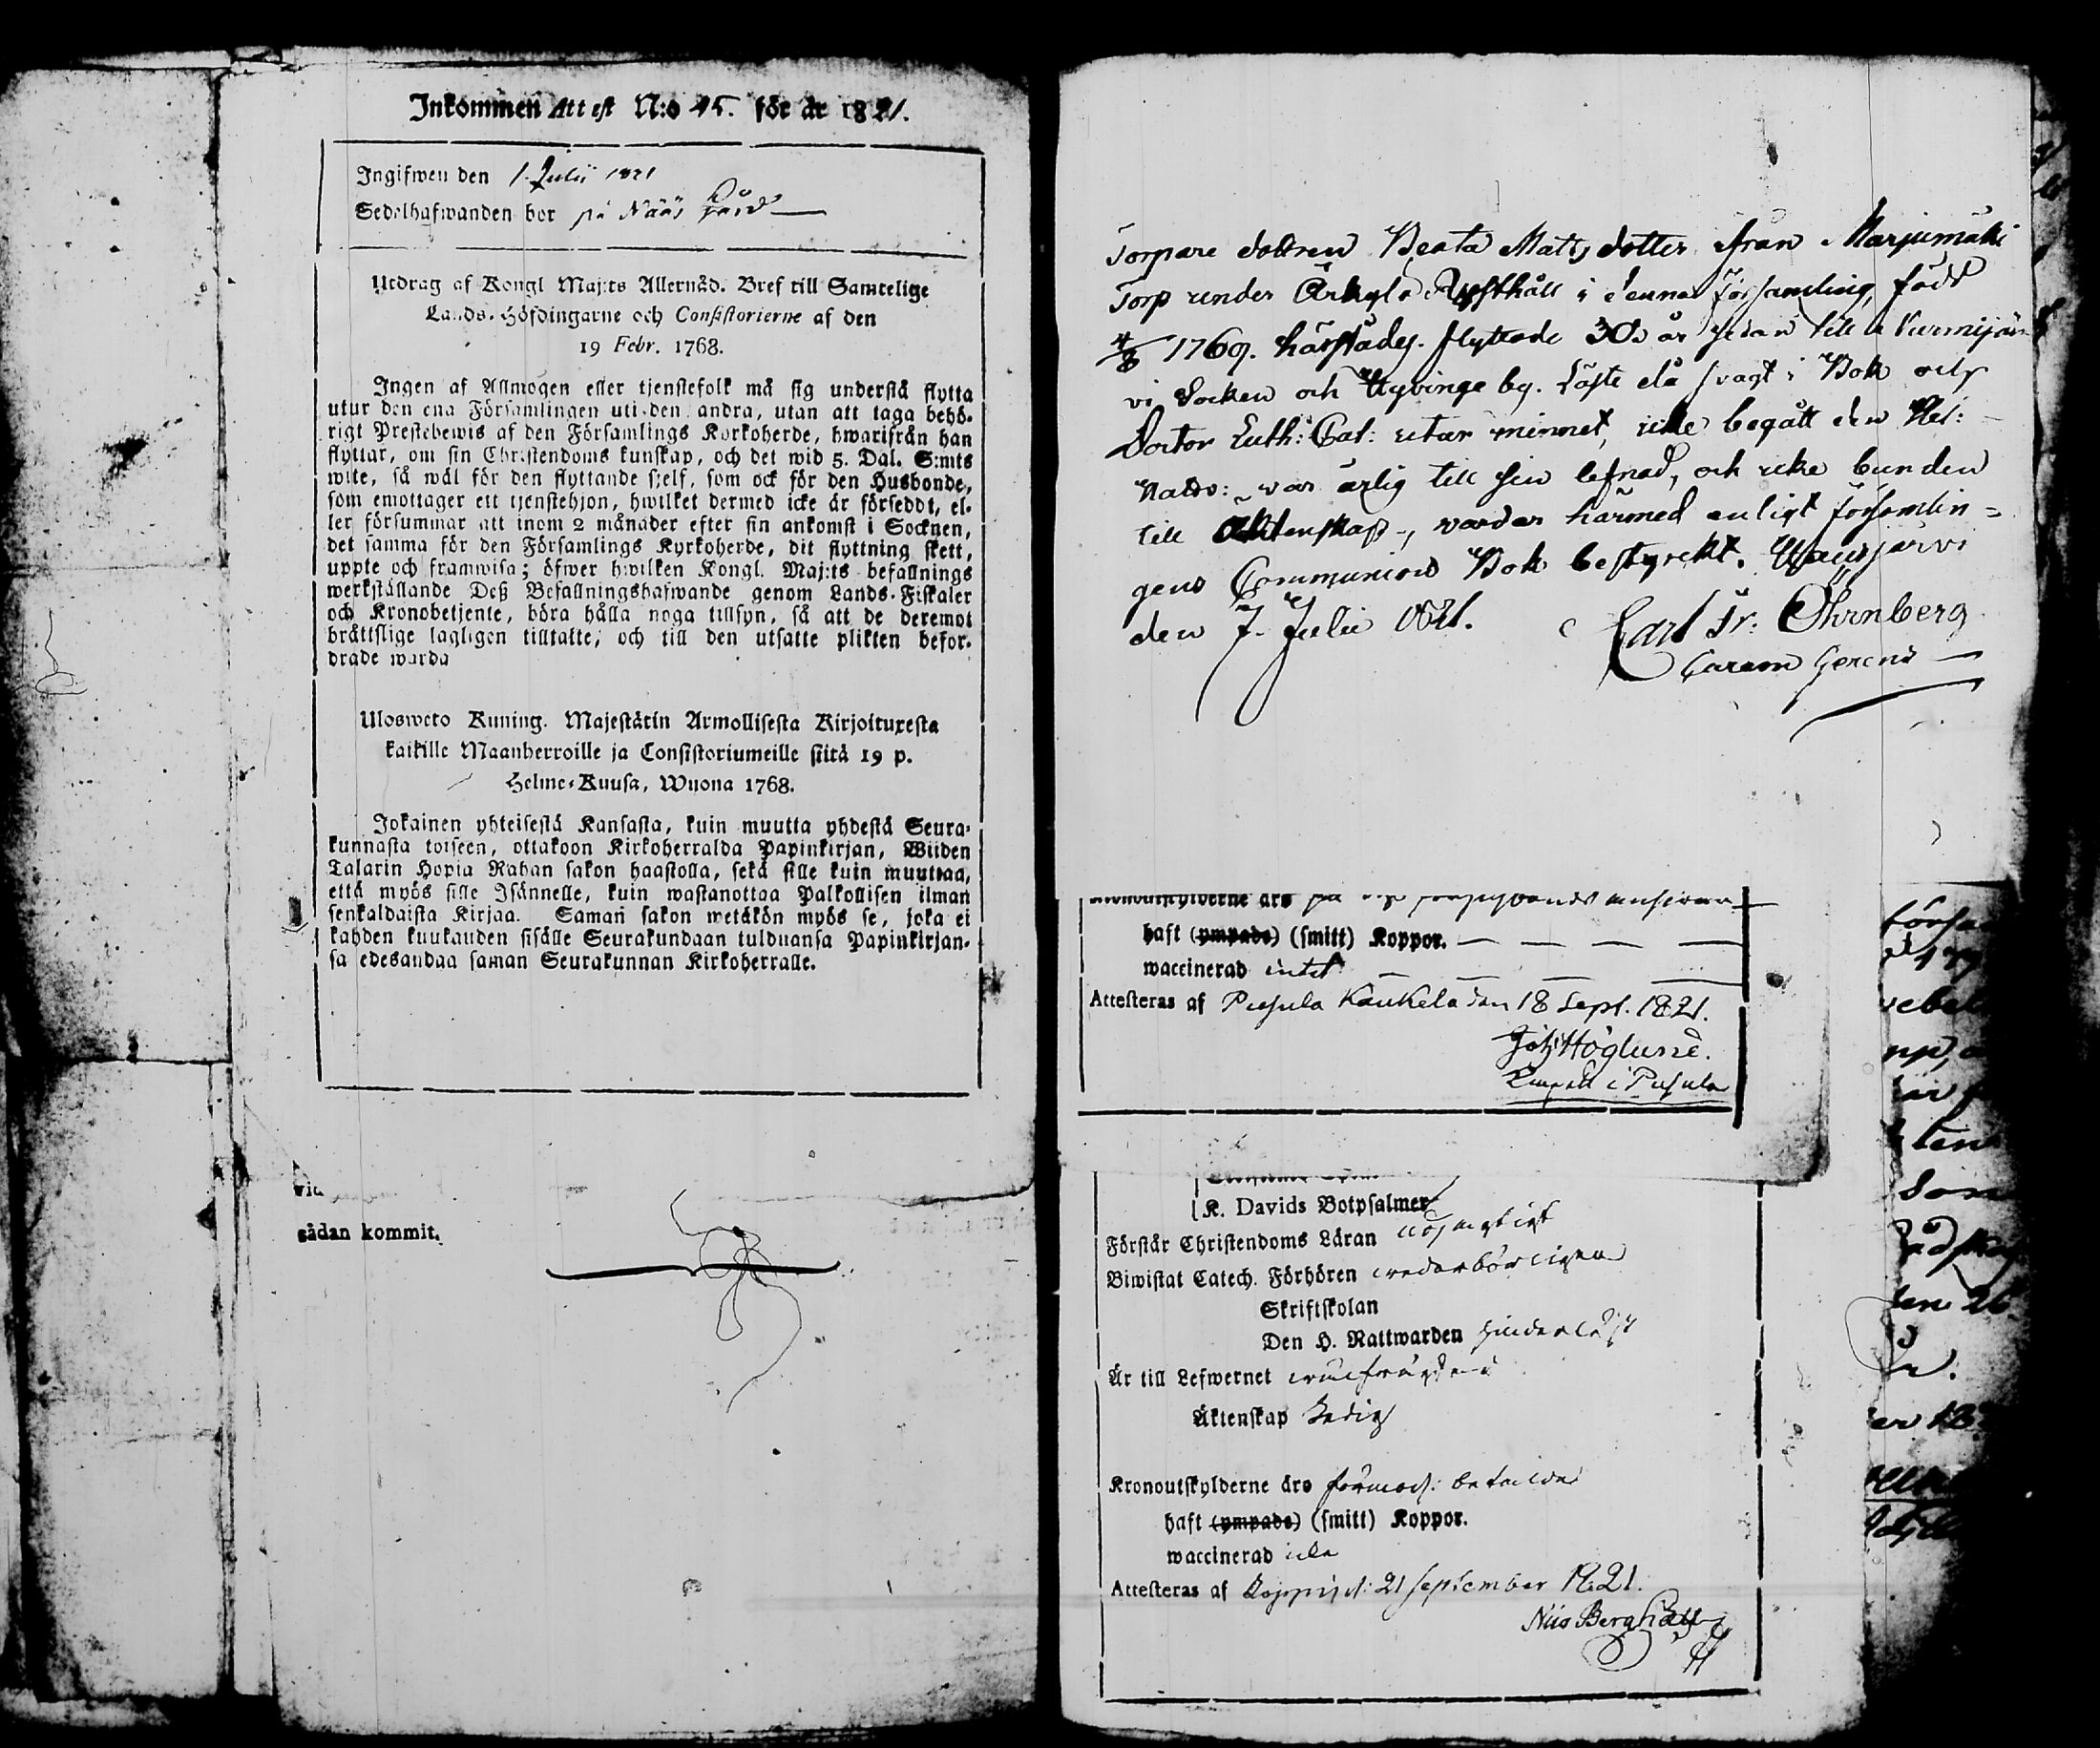 Inkommen Attest N:o 45. för år 1821.
Ingifwen den 1 Julii 1821
Sedelhafwanden bor på Nääs Gård
Utdrag af Kongl Maj:ts Allernåd. Bref till Samtelige
Lands-Höfdingarne och Consistorierne af den
19 Febr. 1768.
Ingen af Allmogen eller tjenstefolk må sig understå flytta
utur den ena Församlingen uti den andra, utan att taga behö-
rigt Prestebewis af den Församlings Kyrkoherde, hwarifrån han
flyttar, om sin Christendoms kunskap, och det wid 5. Dal. S:mts
wite, så wäl för den flyttande sjelf, som ock för den Husbonde,
som emottager ett tjenstehjon, hwilket dermed icke är försedt, el-
ler försummar att inom 2 månader efter sin ankomst i Socknen,
det samma för den Församlings Kyrkoherde, dit flyttning skett,
uppte och framwisa; öfwer hwilken Kongl. Maj:ts befallnings
werkställande Deß Befallningshafwande genom Lands-Fiskaler
och Kronobetjente, böra hålla noga tillsyn, så att de deremot
bråttslige lagligen tilltalte, och till den utsatte plikten befor-
drade warda
Ulosweto Kuning. Majestätin Armollisesta Kirjoituxesta
kaikille Maanherroille ja Consistoriumeille siitä 19 p.
Helme-Kuusa, Wuona 1768.
Jokainen yhteisestä Kansasta, kuin muutta yhdestä Seura-
kunnasta toiseen, ottakoon Kirkoherralda Papinkirjan, Wiiden
Talarin Hopia Rahan sakon haastolla, sekä sille kuin muuttaa,
että myös sille Isännelle, kuin wastanottaa Palkollisen ilman
senkaldaista Kirjaa. Saman sakon wetäkön myös se, joka ei
kahden kuukauden sisälle Seurakundaan tulduansa Papinkirjan-
sa edesandaa saman Seurakunnan Kirkoherralle.
sådan kommit.
Torpare dottren Beata Matsdotter ifrån Marjumäki
Torp under Örkylä Rusthåll i denna Församling, född
4/8 1769. härstädes. flyttade 30 år sedan till Nurmijär-
vi Socken och Hyvinge by. Läste då svagt i Bok och
Doctor Luth: Cat: utur minnet, icke begått den Hel:
Nattv: var ärlig till sin lefnad, och icke bunden
till Äktenskap, varder härmed enligt Församlin-
gens Communions Bok bestyrckt. Mausjärvi
den 7. Julii 1821. Carl Fr: Öhrnberg
Curam Gerens
haft (ympade) (smitt) Koppor.
waccinerad intet
Attesteras af Pusula Kaukela den 18 Sept. 1821.
Höglund.
i Pusula
K. Davids Botpsalmer
Förstår Christendoms Läran nöjagtigt
Biwistat Catech. Förhören wederbörligen
Skriftskolan
Den H. Nattwarden hinderlöst
Är till Lefwernet oruckfrägdad
Äktenskap Ledig
Kronoutskylderne äro förmod: betalde
haft (ympade) (smitt) Koppor.
waccinerad icke
Attesteras af Loppis d: 21 September 1821.
Nils Berghäll